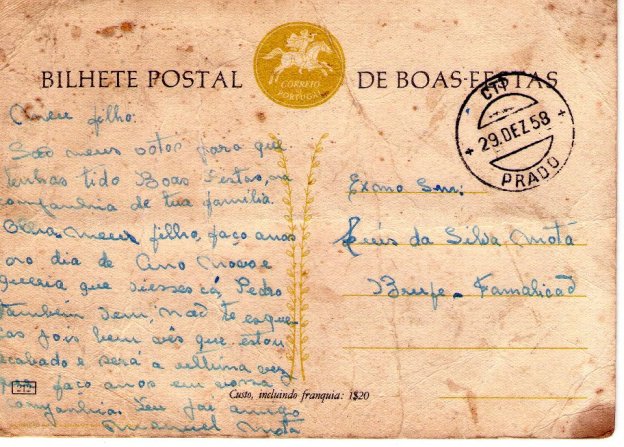 BILHETE POSTAL
DE BOAS-FESTAS
CORREIO
PORTUGAL
CTT
29.DEZ.58
PRADO
Meu filho:
São meus votos para que
tenhas tido Boas Festas, na
companhia de tua família.
Olha, meu filho, faço anos
no dia de Ano Novo e
queria que viesses cá, Pedro
também vem, não te esque
ças pois bem vês que estou
acabado e será a ultima vez
que faço anos em vossa
companhia. Teu pai amigo
Manuel Mota
Exmo Snr:
Luís da Silva Mota
Brufe - Famalicão
212
Custo, incluindo franquia: 1$20